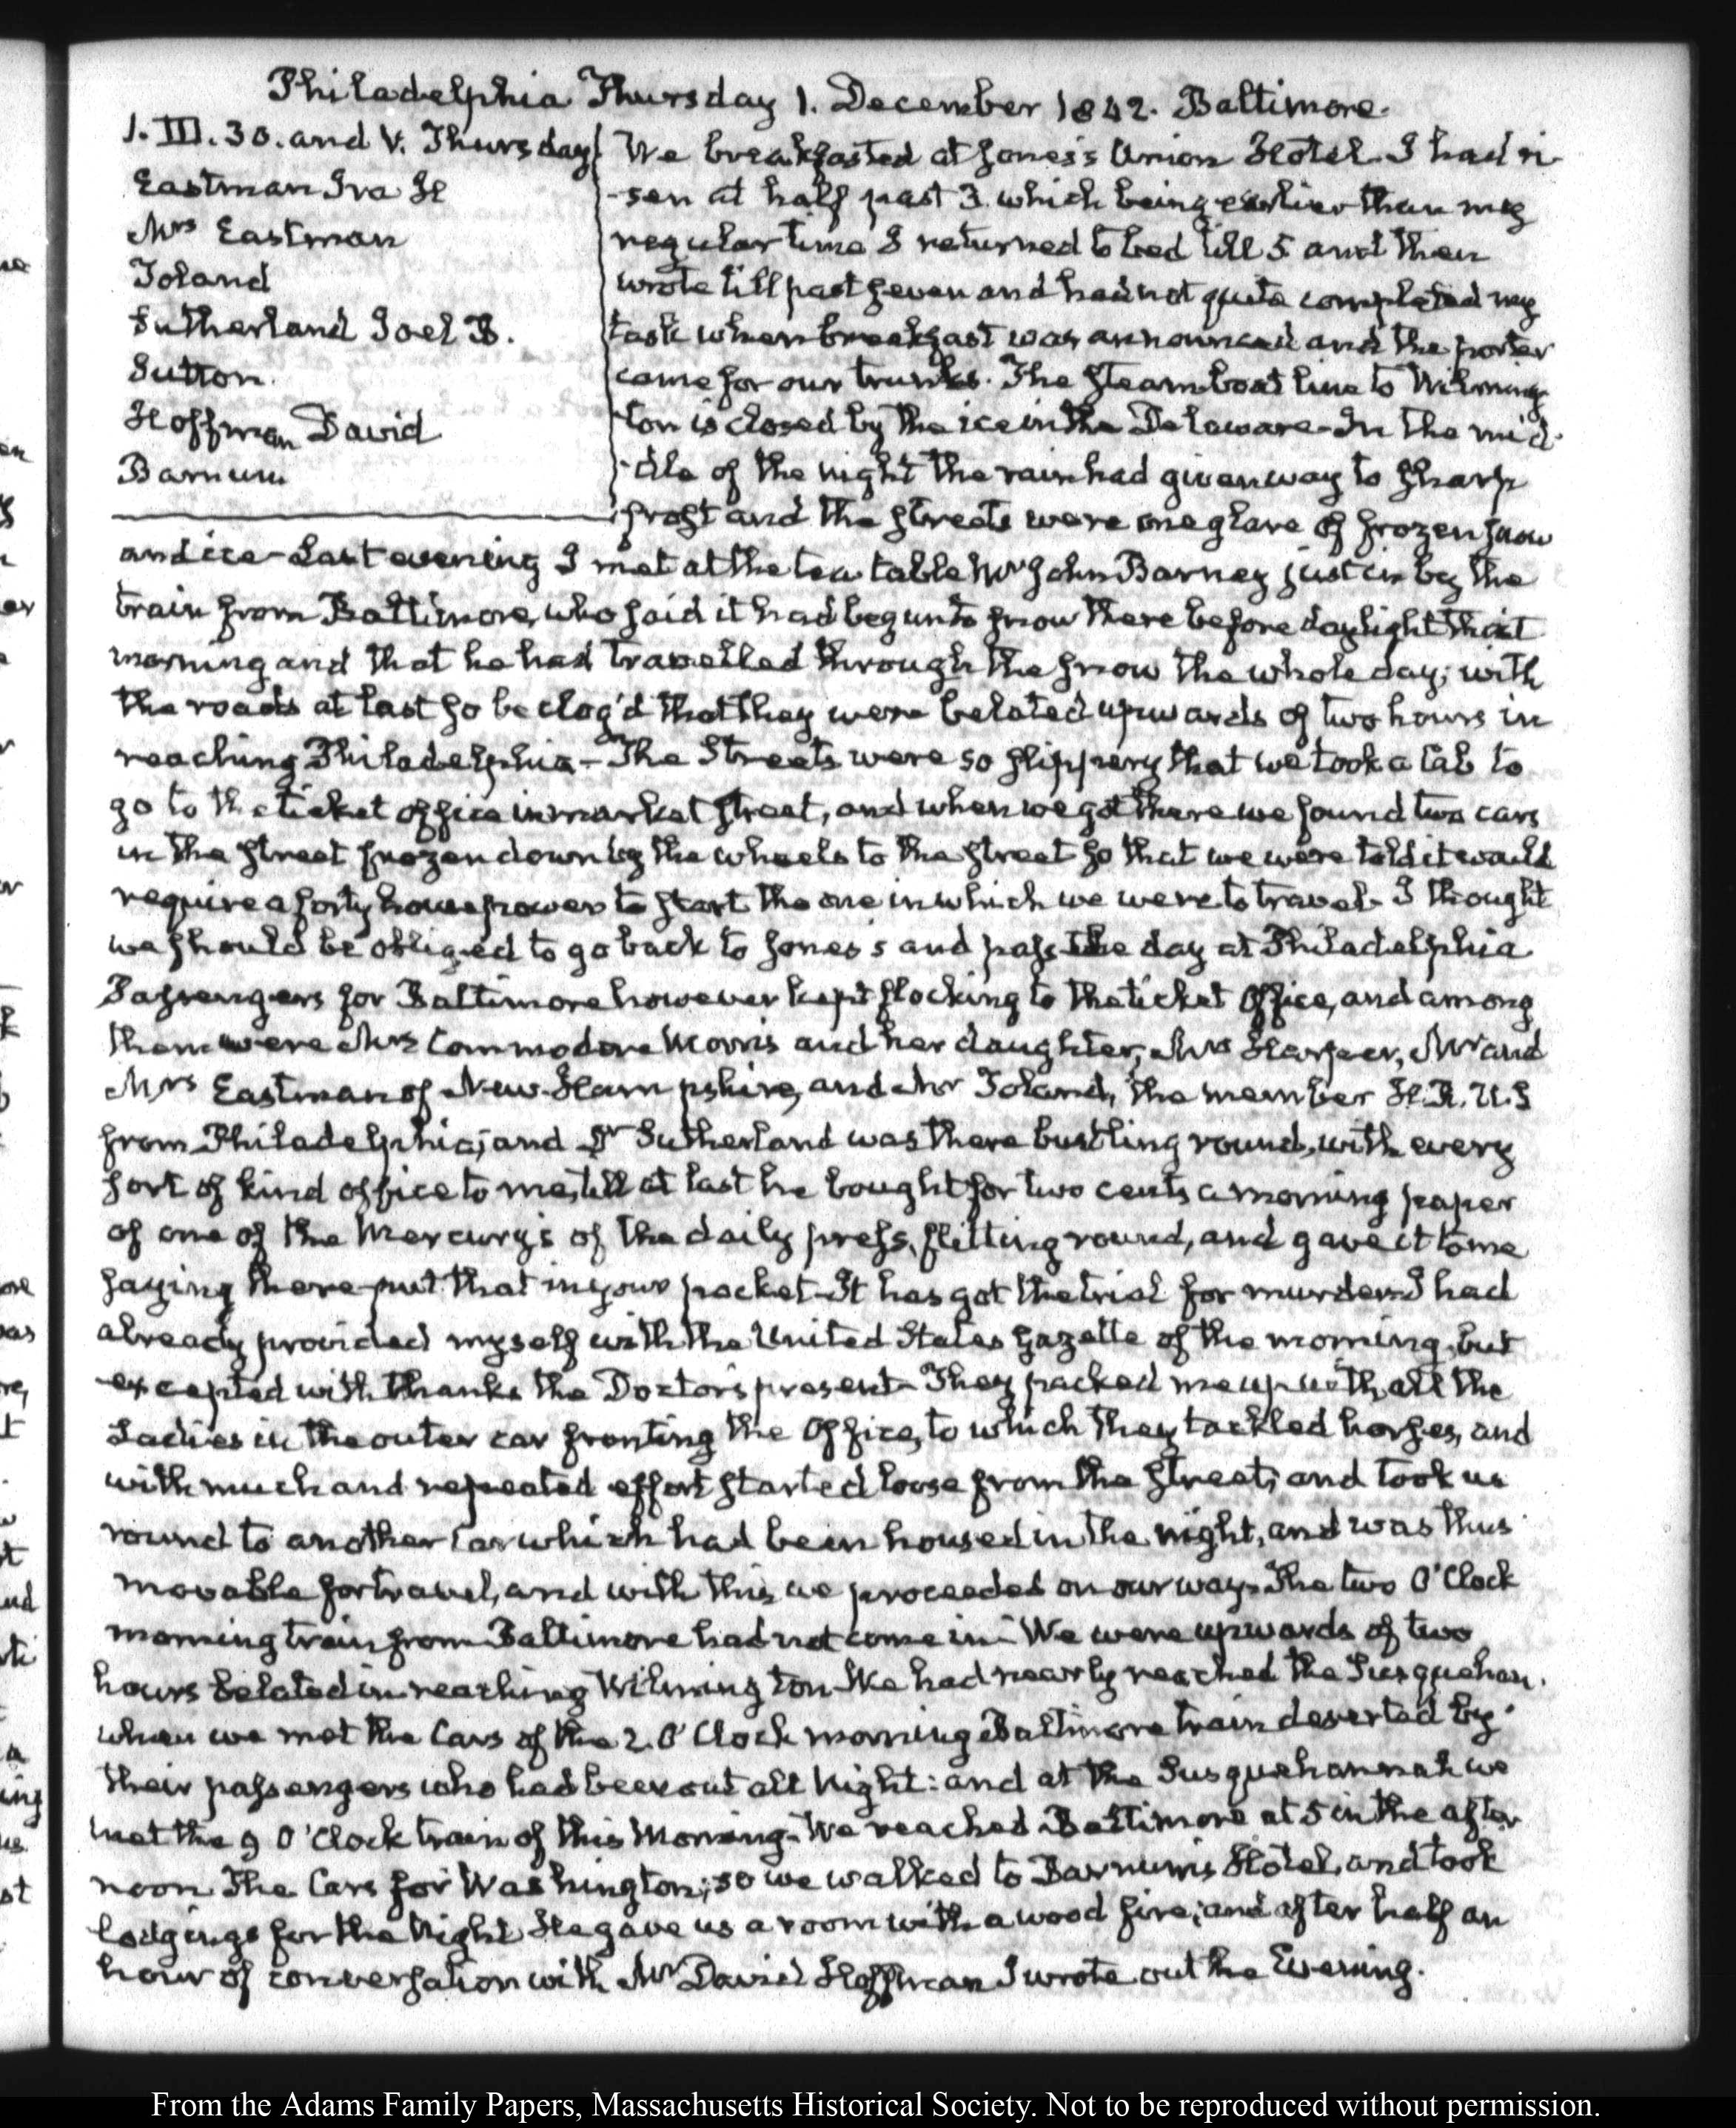 Philadelphia Thursday 1. December 1842. Baltimore.
1. III. 30. and V. Thursday
Eastman Ira H
Mrs Eastman
Toland
Sutherland Joel B.
Sutton.
Hoffman David
Barnum
We breakfasted at Jones's Union Hotel. I had ri-
-sen at half past 3. which being earlier than my
regular time I returned to bed till 5 and then
wrote till past seven and had not quite completed my
task when breakfast was announced and the porter
came for our trunks. The steam boat line to Wilming-
ton is closed by the ice in the Delaware. In the mid-
-dle of the night the rain had given way to sharp
frost and the streets were one glare of frozen snow
and ice—Last evening I met at the tea table Mr John Barney just in by the
train from Baltimore, who said it had begun to snow there before daylight that
morning and that he had travelled through the snow the whole day; with
the roads at last so beclog'd that they were belated upwards of two hours in
reaching Philadelphia—The Streets were so slippery that we took a Cab to
go to the ticket office in market street, and when we got there we found two cars
in the street frozen down by the wheels to the street so that we were told it would
require a forty horse power to start the one in which we were to travel—I thought
we should be obliged to go back to Jones's and pass the day at Philadelphia
Passengers for Baltimore however kept flocking to the ticket Office, and among
them were Mrs Commodore Morris and her daughter, Mrs Harper, Mr and
Mrs Eastman of New-Hampshire, and Mr Toland, the member H.R. U.S
from Philadelphia; and Dr Sutherland was there bustling round, with every
sort of kind office to me, till at last he bought for two cents a morning paper
of one of the Mercury's of the daily press, flitting round, and gave it to me
saying there—put that in your pocket—It has got the trial for murder. I had
already provided myself with the United States Gazette of the morning, but
excepted with thanks the Doctor's present—They packed me up with all the
Ladies in the outer car fronting the Office, to which they tackled horses, and
with much and repeated effort started loose from the street; and took us
round to another Car which had been housed in the night, and was thus
movable for travel, and with this we proceeded on our way—The two O'Clock
morning train from Baltimore had not come in—We were upwards of two
hours belated in reaching Wilmington—We had nearly reached the Susquehan.
when we met the Cars of the 2. O'Clock morning Baltimore train deserted by
their passengers who had been out all Night: and at the Susquehannah we
met the 9 O'Clock train of this Morning—We reached Baltimore at 5 in the after
noon The Cars for Washington; so we walked to Barnum's Hotel, and took
lodgings for the Night. He gave us a room with a wood fire; and after half an
hour of conversation with Mr David Hoffman I wrote out the Evening.
From the Adams Family Papers, Massachusetts Historical Society. Not to be reproduced without permission.